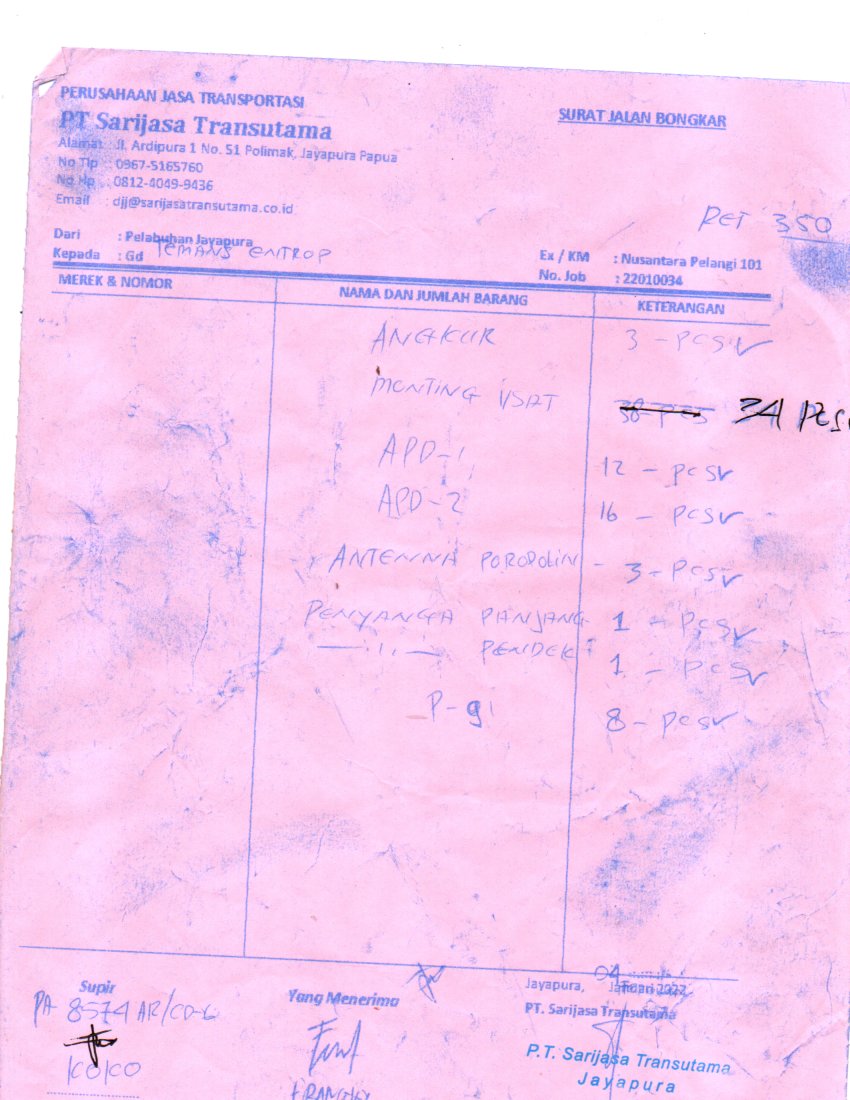 PERUSAHAAN JASA TRANSPORTASI
PT Sarijasa Transutama
SURAT JALAN BONGKAR
Alamat : Jl. Ardipura 1 No. 51 Polimak, Jayapura Papua
No Tlp : 0967-5165760
No Hp : 0812-4049-9436
Email : djj@sarijasatransutama.co.id
RET 350
Dari : Pelabuhan Jayapura
Kepada : Gd TEMANS ENTROP
Ex / KM : Nusantara Pelangi 101
No. Job : 22010034
MEREK & NOMOR NAMA DAN JUMLAH BARANG KETERANGAN
ANGKUR 3 - PCS
MONTING VSAT 38 PCS 34 PCS
APD-1 12 - PCS
APD-2 16 - PCS
ANTENNA POROPOLIN - 3 - PCS
PENYANGA PANJANG 1 - PCS
— ,, — PENDEK 1 - PCS
P-9 8 - PCS
Supir
PA 8574 AR/CD-6
KOKO
Yang Menerima
FRANGKY
Jayapura, 04 2022
PT. Sarijasa Transutama
P.T. Sarijasa Transutama
Jayapura